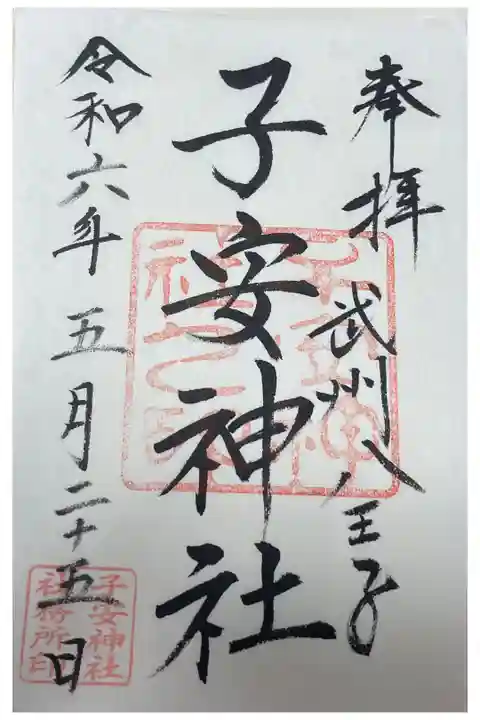 奉拝
武州八王子
子安神社
令和六年五月二十五日
子安神社
社務所印